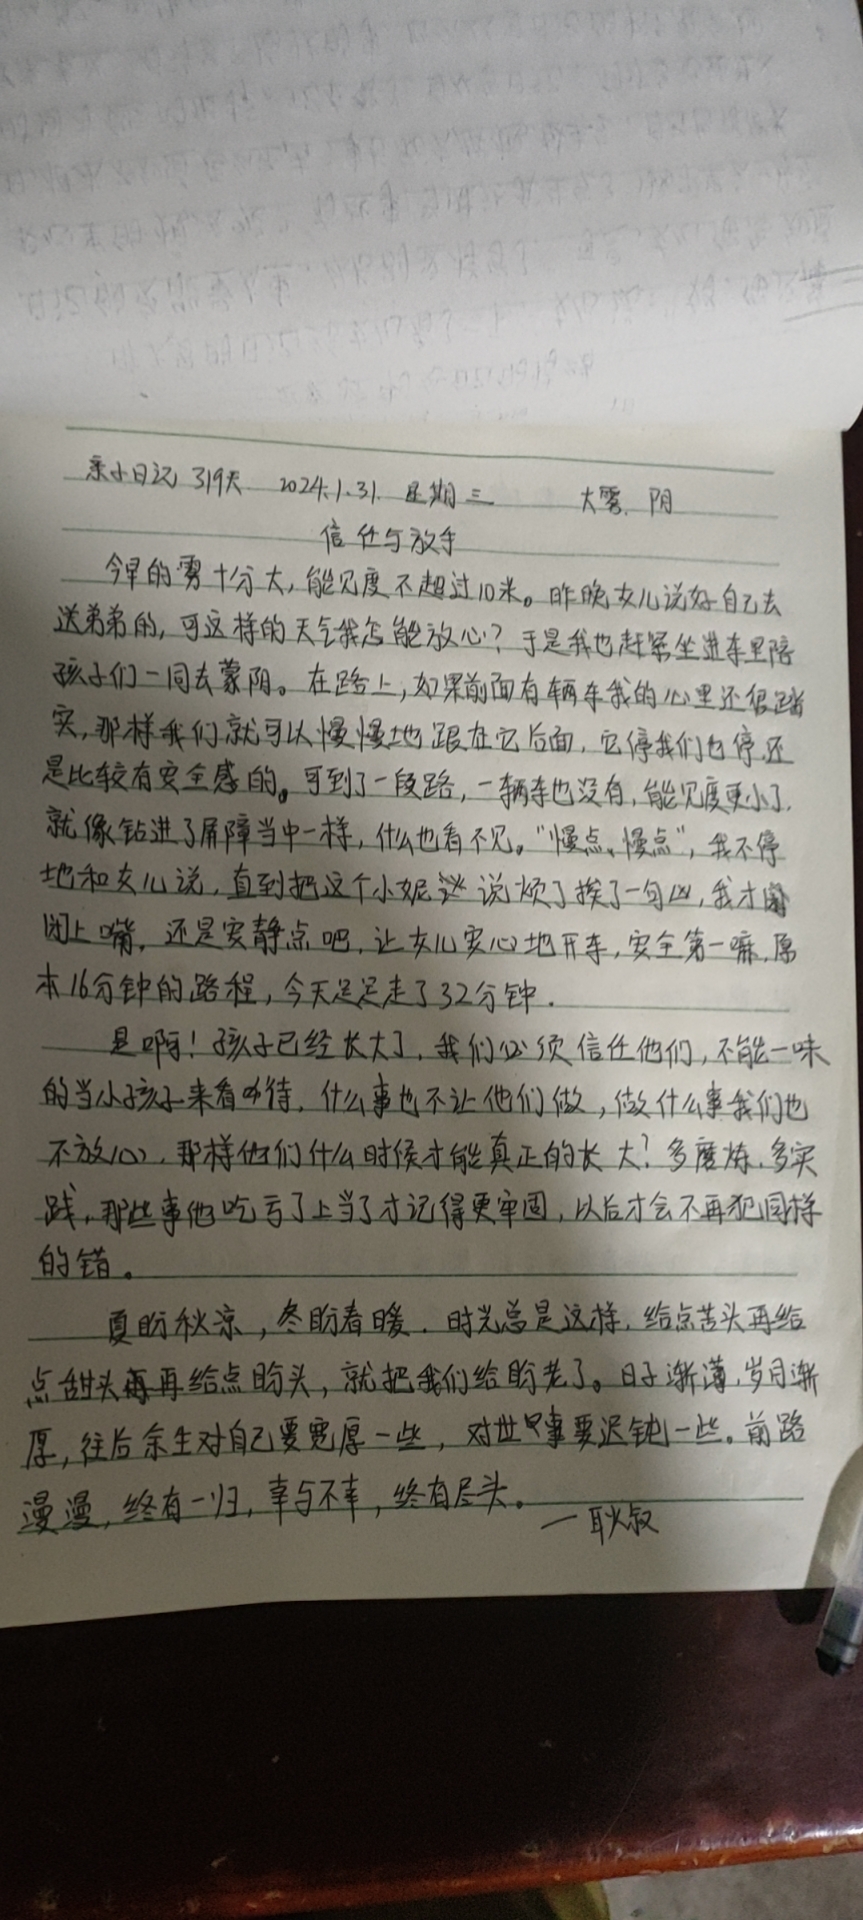 亲子日记319天 2024.1.31. 星期三 大雾.阴
信任与放手
今早的雾十分大,能见度不超过10米。昨晚女儿说好自己去
送弟弟的,可这样的天气我怎能放心?于是我也赶紧坐进车里陪
孩子们一同去蒙阴。在路上,如果前面有辆车我的心里还很踏
实,那样我们就可以慢慢地跟在它后面,它停我们也停,还
是比较有安全感的。可到了一段路,一辆车也没有,能见度更小了.
就像钻进了屏障当中一样,什么也看不见。“慢点、慢点”,我不停
地和女儿说,直到把这个小妮 说烦了挨了一句凶,我才
闭上嘴,还是安静点吧,让女儿安心地开车,安全第一嘛.原
本16分钟的路程,今天足足走了32分钟.
是啊!孩子已经长大了,我们必须信任他们,不能一味
的当小孩子来看待,什么事也不让他们做,做什么事我们也
不放心,那样他们什么时候才能真正的长大?多磨炼.多实
践,那些事他吃亏了上当了才记得更牢固,以后才会不再犯同样
的错。
夏盼秋凉,冬盼春暖.时光总是这样,给点苦头再给
点甜头再再给点盼头,就把我们给盼老了。日子渐薄,岁月渐
厚,往后余生对自己要宽厚一些,对世事要迟钝一些。前路
漫漫,终有一归,幸与不幸,终有尽头。
一耿叔